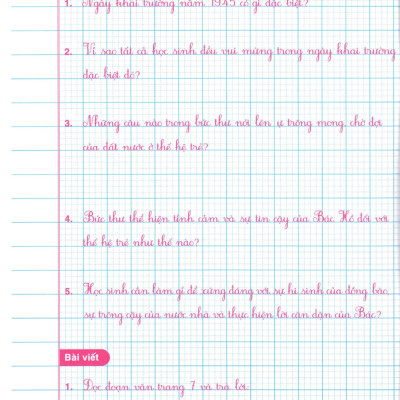 1. Ngày khai trường năm 1945 có gì đặc biệt?
2. Vì sao tất cả học sinh đều vui mừng trong ngày khai trường
đặc biệt đó?
3. Những câu nào trong bức thư nói lên sự trông mong, chờ đợi
của đất nước ở thế hệ trẻ?
4. Bức thư thể hiện tình cảm và sự tin cậy của Bác Hồ đối với
thế hệ trẻ như thế nào?
5. Học sinh cần làm gì để xứng đáng với sự hi sinh của đồng bào,
sự trông cậy của nước nhà và thực hiện lời căn dặn của Bác?
Bài viết
1. Đọc đoạn văn trang 7 và trả lời.